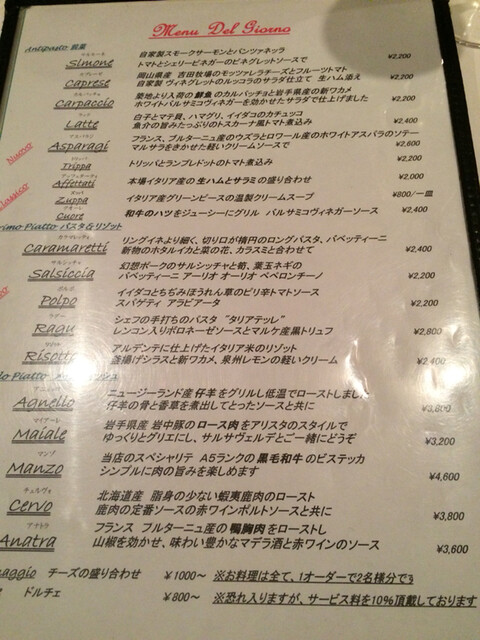 Menu Del Giorno
Antipasto 前菜
Simone 自家製スモークサーモンとパンツァネッラ
トマトとシェリービネガーのビネグレットソースで ¥2,200
Caprese 岡山県産 吉田牧場のモッツァレラチーズとフルーツトマト
自家製 ヴィネグレットのルッコラのサラダ仕立て 生ハム添え ¥2,200
Carpaccio 築地より入荷の 鮮魚 のカルパッチョと岩手県産の新ワカメ
ホワイトバルサミコヴィネガーを効かせたサラダで仕上げました ¥2,200
Latte 白子とマテ貝、ハマグリ、イイダコのカチュッコ
魚介の旨みたっぷりのトスカーナ風トマト煮込み ¥2,400
Asparagi フランス、ブルターニュ産のウズラとロワール産のホワイトアスパラのソテー
マルサラをきかせた軽いクリームソースで ¥2,600
Nuovo
トリッパ
Trippa トリッパとランプレドットのトマト煮込み ¥2,200
アッフェッターティ
Affettati 本場イタリア産の 生ハムとサラミ の盛り合わせ ¥2,000
Classico
ズッパ
Zuppa イタリア産グリーンピースの温製クリームスープ ¥800/一皿
クオーレ
Cuore 和牛のハツ をジューシーにグリル バルサミコヴィネガーソース ¥2,400
rimo-Piatto パスタ&リゾット
Caramaretti リングイネより細く、切り口が楕円のロングパスタ、バベッティーニ
新物のホタルイカと菜の花、カラスミと合わせて ¥2,400
Salsiccia 幻想ポークのサルシッチャと筍、葉玉ネギの
バベッティーニ アーリオ オーリオ ペペロンチーノ ¥2,200
Polpo イイダコとちぢみほうれん草のピリ辛トマトソース
スパゲティ アラビアータ ¥2,200
ラグー
Ragu シェフの手打ちのパスタ “タリアテッレ”
レンコン入りボロネーゼソースとマルケ産黒トリュフ ¥2,800
Risotto アルデンテに仕上げたイタリア米のリゾット
釜揚げシラスと新ワカメ、泉州レモンの軽いクリーム ¥2,400
do Piatto
Agnello ニュージーランド産 仔羊 をグリルし低温でローストしました
仔羊の骨と香草を煮出してとったソースと共に ¥3,600
マイアーレ
Maiale 岩手県産 岩中豚の ロース肉 をアリスタのスタイルで
ゆっくりとグリエにし、サルサヴェルデとご一緒にどうぞ ¥3,200
マンゾ
Manzo 当店のスペシャリテ A5ランクの 黒毛和牛 のビステッカ
シンプルに肉の旨みを楽しめます ¥4,600
チェルヴォ
Cervo 北海道産 脂身の少ない蝦夷鹿肉のロースト
鹿肉の定番ソースの赤ワインポルトソースと共に ¥3,800
アナトラ
Anatra フランス ブルターニュ産の 鴨胸肉 をローストし
山椒を効かせ、味わい豊かなマデラ酒と赤ワインのソース ¥3,600
maggio チーズの盛り合わせ ¥1000～ ※お料理は全て、1オーダーで2名様分で
ドルチェ ¥800～ ※恐れ入りますが、サービス料を10%頂戴しております